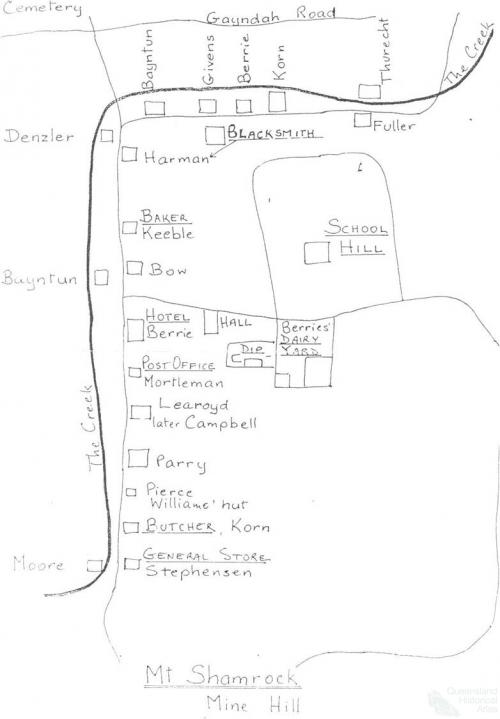 Cemetery
Gayndah Road
Bayntun
Givens
Berrie
Korn
Thurecht
The Creek
Denzler
BLACKSMITH
Fuller
Harman
BAKER
Keeble
SCHOOL
HILL
Bayntun
Bow
HOTEL
Berrie
HALL
Berries'
DAIRY
YARD
DIP
POST OFFICE
Mortleman
Learoyd
later Campbell
The Creek
Parry
Pierce
Williams' hut
BUTCHER, Korn
Moore
GENERAL STORE
Stephensen
Mt Shamrock
Mine Hill
Queensland
Historical
Atlas